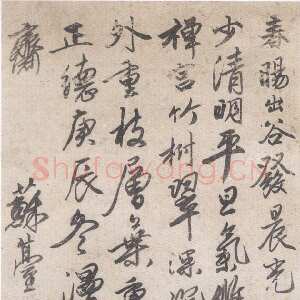 春暘出谷發晨光
少清明平旦氣
禪言竹樹翠深
外重枝層葉重
正德庚辰冬漫
齋
蘇臺